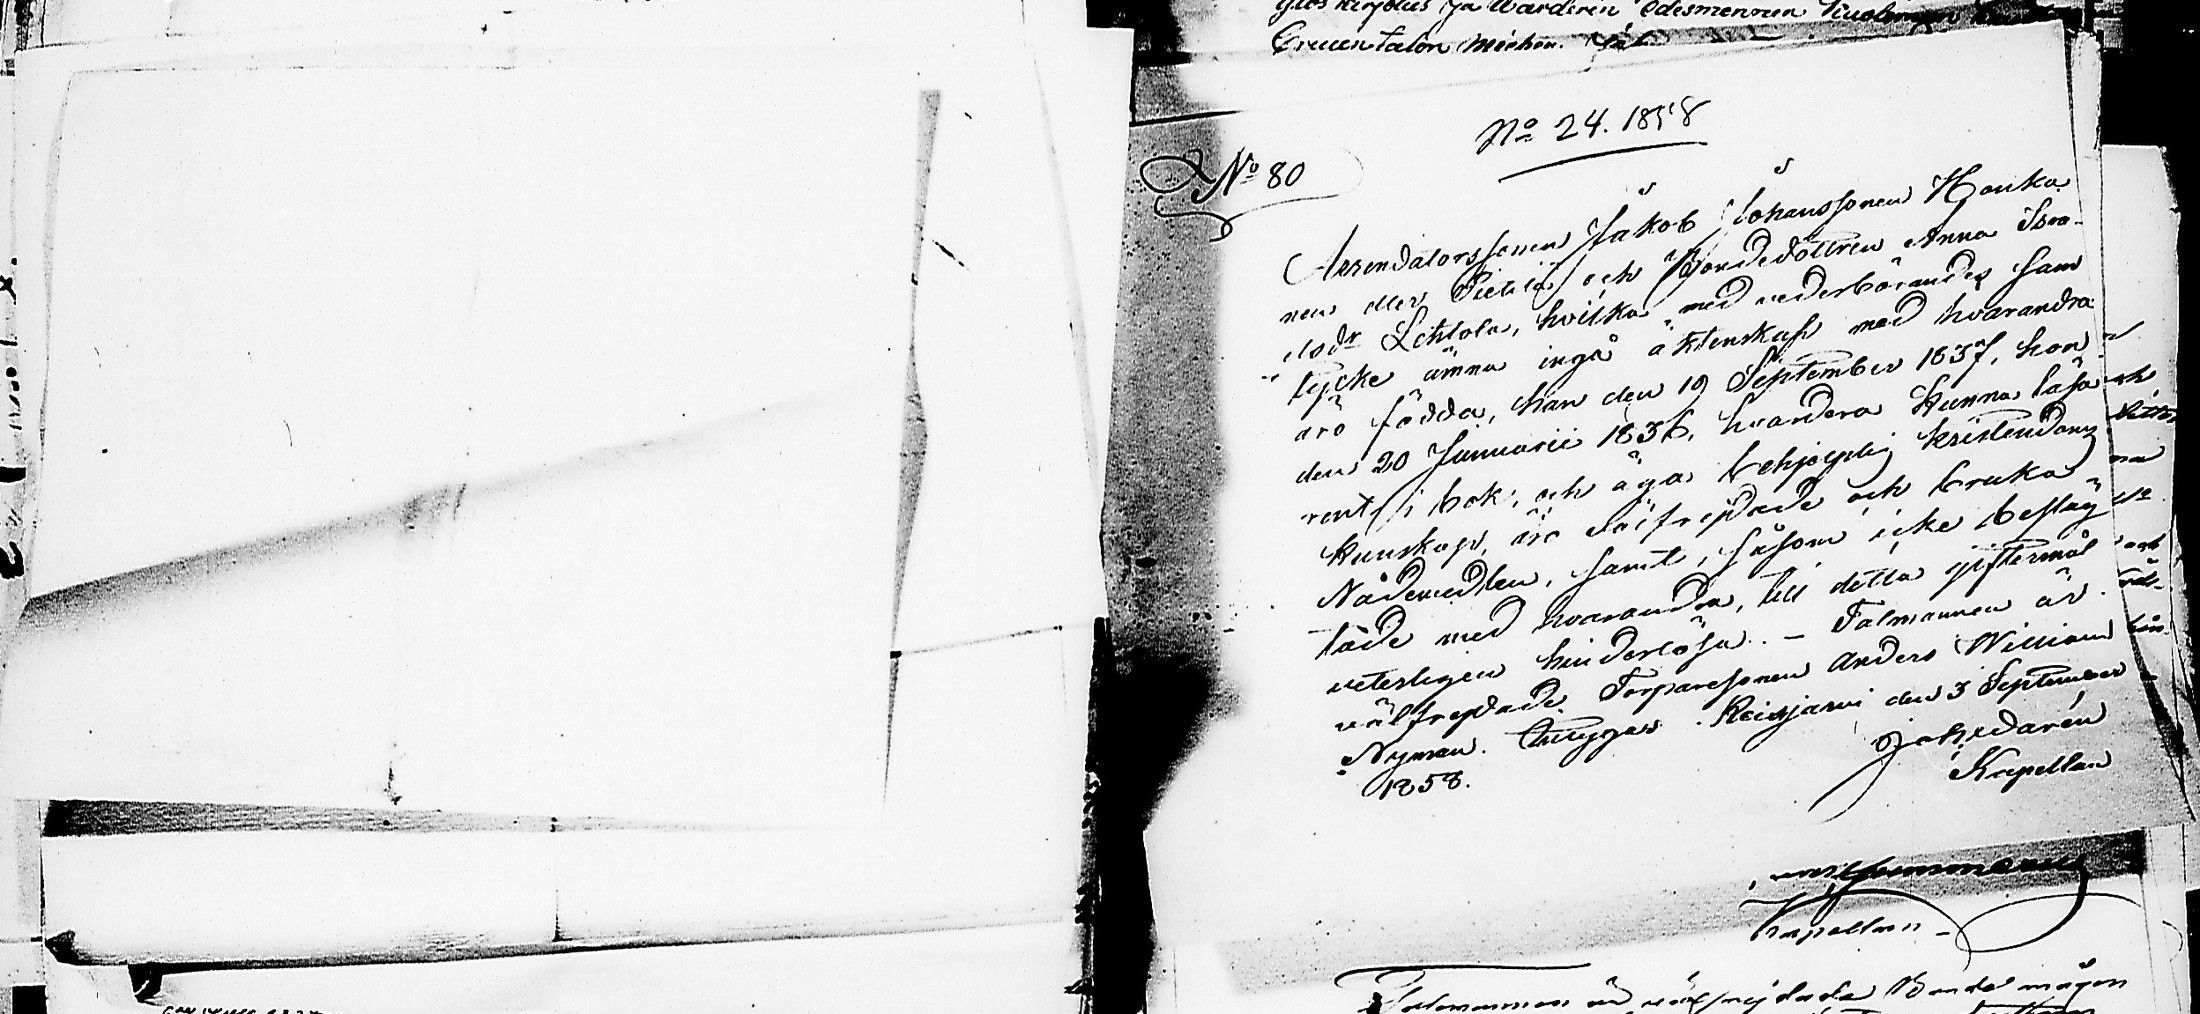 ja Wärderin Edesmennen
talon
No 24. 1858
No 80
Arrendatorssonen Jakob Johanssonen Honka
nen eller Pietilä och Bondedottren Anna Isra-
elsdr Lehtola, hvilka med vederbörandes sam
tycke ämna ingå äktenskap med hvarandra
äro födda, han den 19 September 1837, hon
den 20 Januarii 1836, hvardera kunna läsa
rent i bok, och äga behjelplig kristendoms
kunskap, äro väl frejdade och bruka
Nådemedlen, samt, såsom icke besläg
tade med hvarandra, till detta giftermål
veterligen hinderlösa. - Talmannen är
välfrejdade Torparesonen Anders William
Nyman. Reisjärvi den 3 September
1858.
Kapellan
Kapellan
Talmannen är välfrejdade Bonde mågen